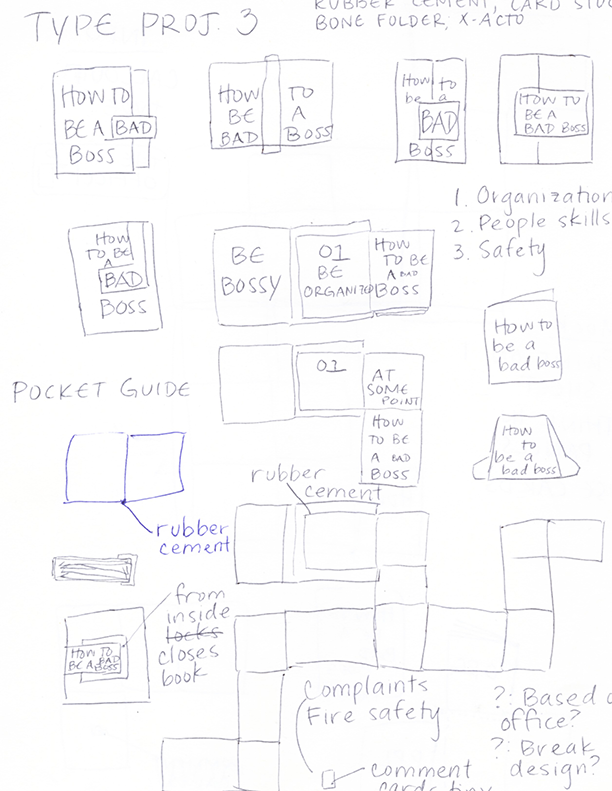 TYPE PROJ. 3
RUBBER CEMENT, CARD STOC
BONE FOLDER, X-ACTO
HOW TO
BE A BAD
BOSS
HOW
BE
BAD
TO
A
BOSS
How to
be a
BAD
BOSS
HOW TO
BE A
BAD BOSS
1. Organization
2. People skills
3. Safety
HOW
TO BE
A
BAD
BOSS
BE
BOSSY
01
BE
ORGANIZED
HOW
TO BE
A BAD
BOSS
How to
be a
bad boss
POCKET GUIDE
AT
SOME
POINT
HOW
TO BE
A BAD
BOSS
How
to
be a
bad boss
rubber
cement
rubber
cement
from
inside
locks
closes
book
HOW TO
BE A BAD
BOSS
Complaints
Fire safety
comment
cards tiny
?: Based o
office?
?: Break
design?